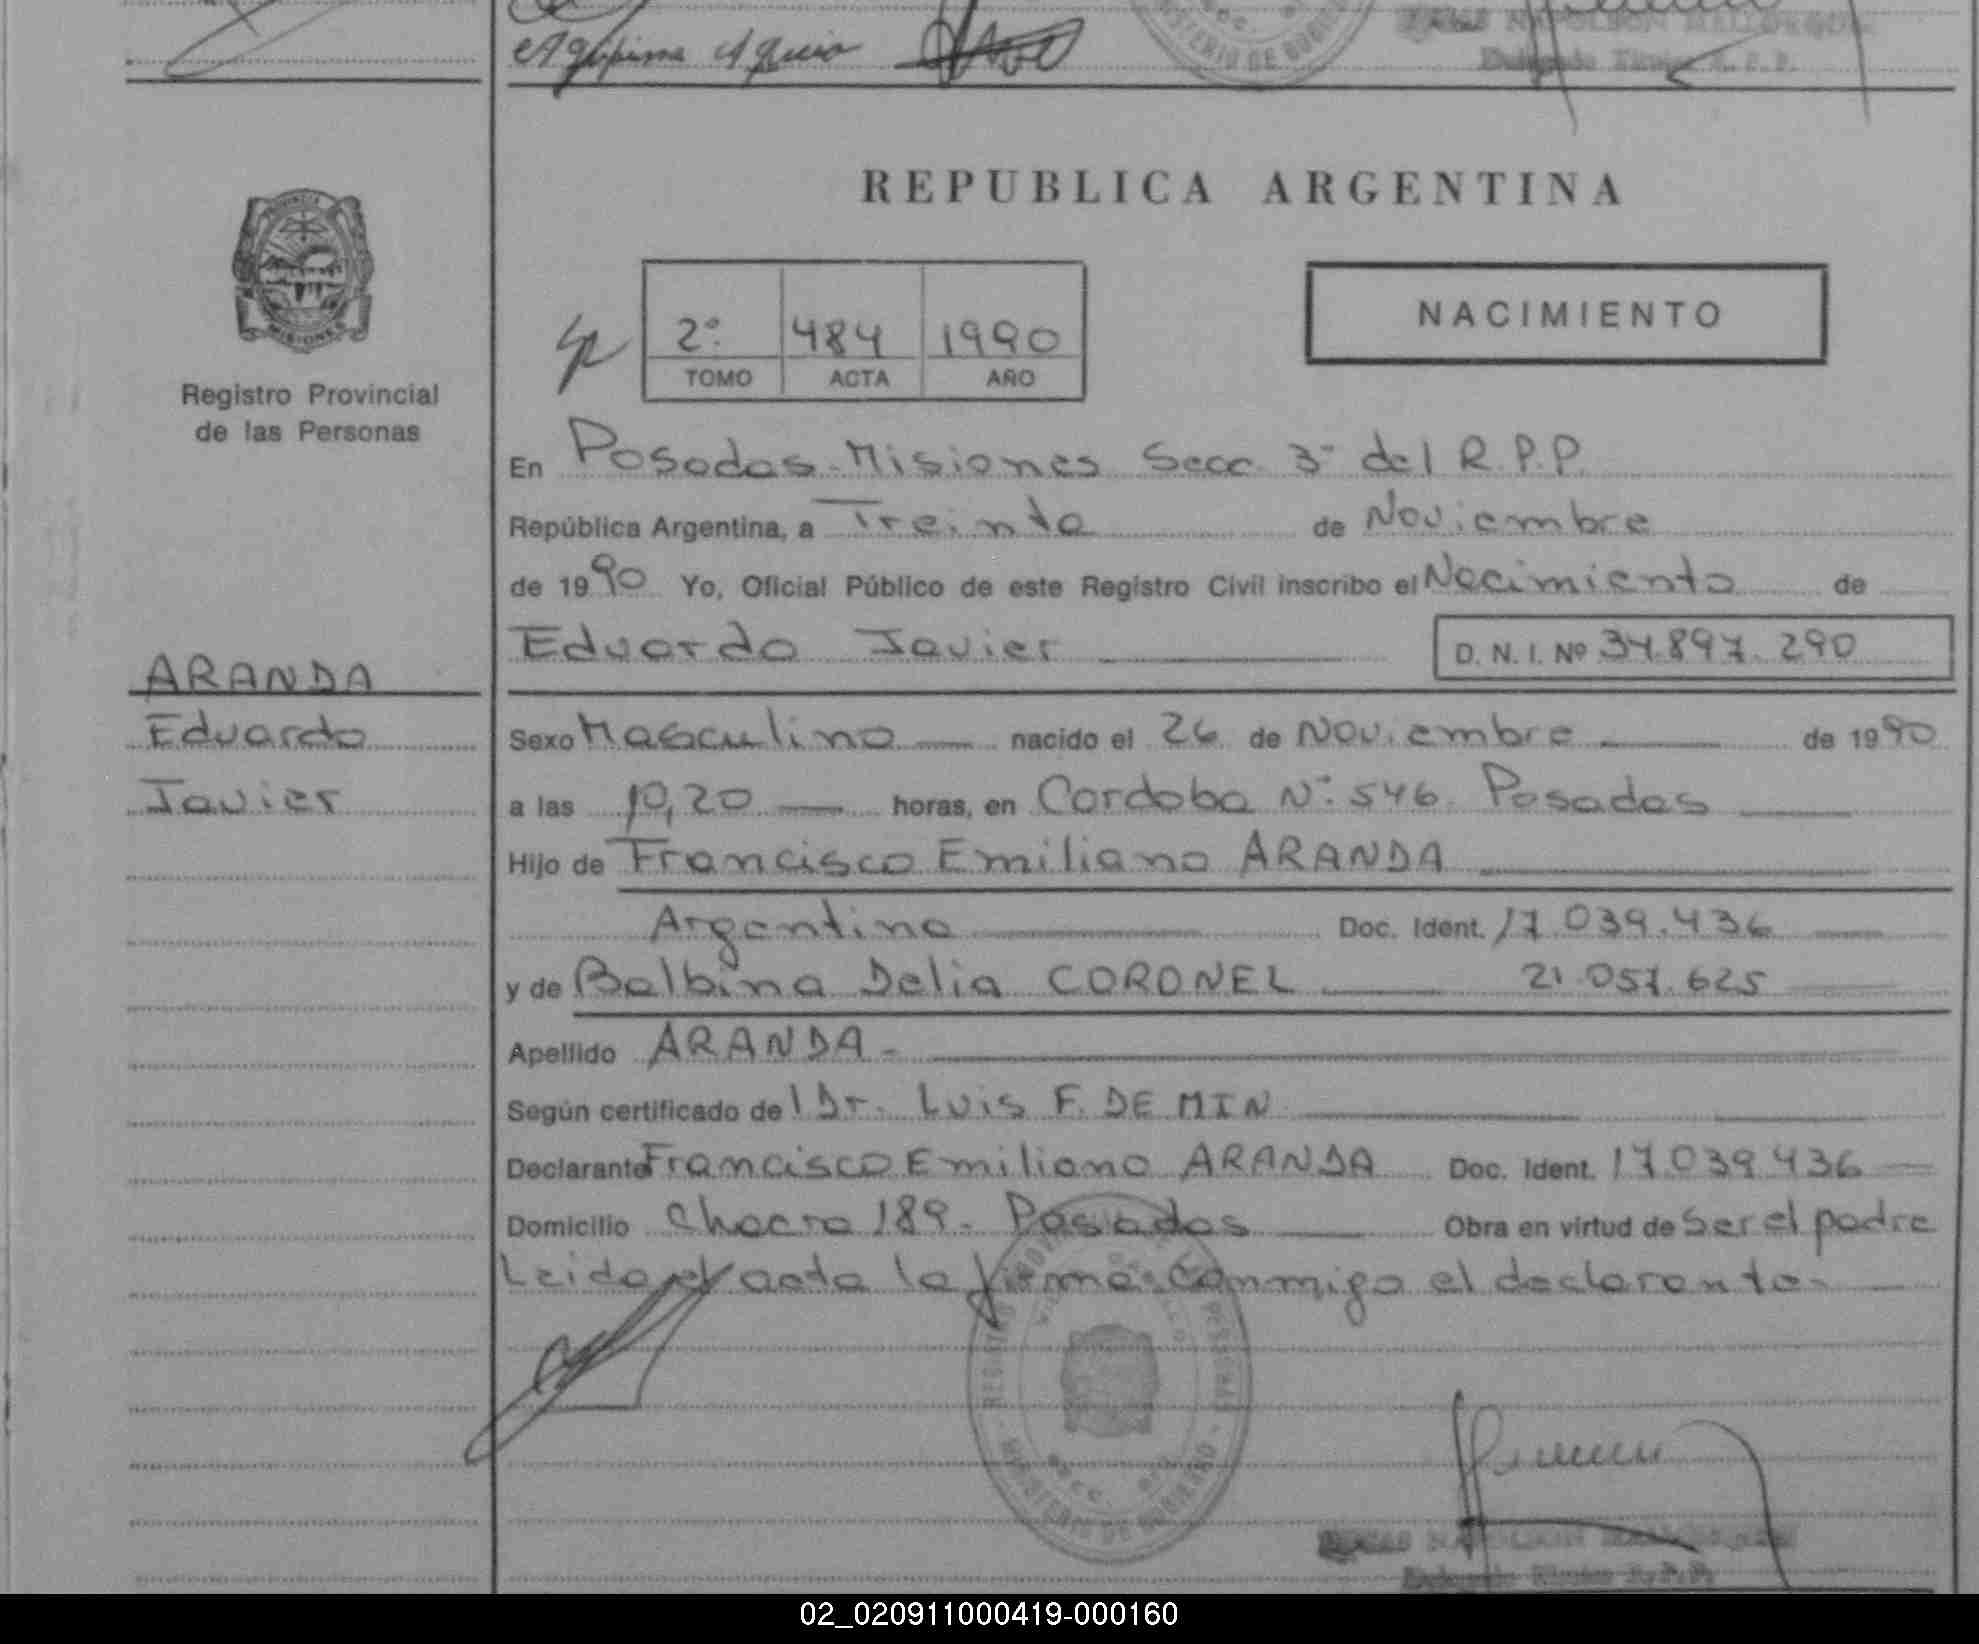 Agripina
MINISTERIO DE GOBIERNO
NAPOLEON
Delegado Titular R.P.P.
REPUBLICA ARGENTINA
PROVINCIA
MISIONES
Registro Provincial
de las Personas
2º 484 1990
TOMO ACTA AÑO
NACIMIENTO
En Posadas-Misiones Secc. 3ª del R.P.P.
República Argentina, a Treinta de Noviembre
de 1990 Yo, Oficial Público de este Registro Civil inscribo el Nacimiento de
Eduardo Javier D.N.I. Nº 34.897.290
ARANDA
Eduardo
Javier
Sexo Masculino nacido el 26 de Noviembre de 1990
a las 10,20 horas, en Cordoba Nº: 546. Posadas
Hijo de Francisco Emiliano ARANDA
Argentino Doc. Ident. 17.039.436
y de Balbina Delia CORONEL 21.057.625
Apellido ARANDA-
Según certificado del Dr. Luis F. DE MIN
Declarante Francisco Emiliano ARANDA Doc. Ident. 17.039.436
Domicilio Chacra 189- Posadas Obra en virtud de Ser el padre
Leida el acta la firma conmigo el declarante-
MINISTERIO DE GOBIERNO
NAPOLEON
Delegado Titular R.P.P.
02_020911000419-000160